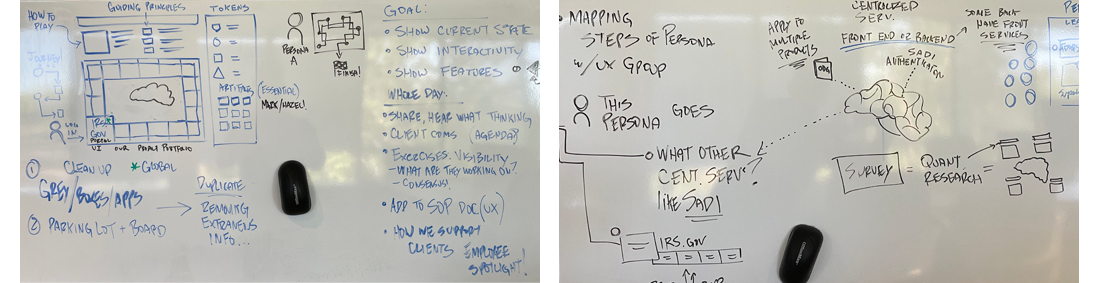 GUIDING PRINCIPLES
HOW TO
PLAY
JOURNEY
LOG
IN
IRS.
GOV
PORTAL
UI OUR PRODUCT PORTFOLIO
TOKENS
ARTIFACTS
(ESSENTIAL)
MARK/HAZEL!
PERSONA
A
FINISH!
① CLEAN UP * GLOBAL
GREY/BOXES/APPS
② PARKING LOT + BOARD
DUPLICATE
REMOVING
EXTRANEOUS
INFO...
GOAL:
• SHOW CURRENT STATE
• SHOW INTERACTIVITY
• SHOW FEATURES
WHOLE DAY:
• SHARE, HEAR WHAT THINKING
• CLIENT COMS (AGENDA?)
• EXERCISES: VISIBILITY
– WHAT ARE THEY WORKING ON?
– CONSENSUS!
• ADD TO SOP DOC (UX)
• HOW WE SUPPORT
CLIENTS EMPLOYEE
SPOTLIGHT!
• MAPPING
STEPS OF PERSONA
w/ UX GROUP
THIS
PERSONA GOES
WHAT OTHER
CENT. SERV?
like SADI
IRS.GOV
APPLY TO
MULTIPLE
PRODUCTS
CENTRALIZED
SERV.
FRONT END OR BACKEND
SADI
AUTHENTICATION
SOME BACK
HAVE FRONT
SERVICES
SURVEY = QUANT
RESEARCH =